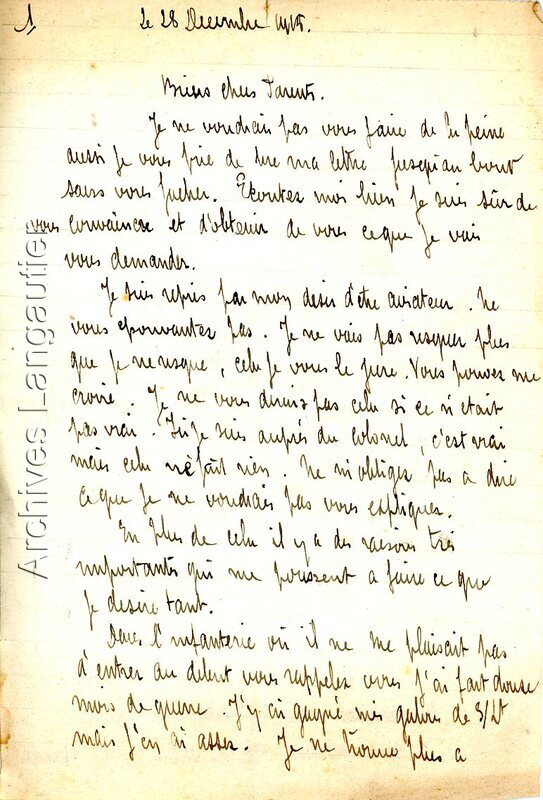 1
Le 28 Decembre 1915.
Biens chers Parents.
Je ne voudrais pas vous faire de la peine
aussi je vous prie de lire ma lettre jusqu'au bout
sans vous facher. Ecoutez moi bien je suis sûr de
vous convaincre et d'obtenir de vous ce que je vais
vous demander.
Je suis repris par mon desir d'être aviateur. Ne
vous epouvantez pas. Je ne vais pas risquer plus
que je ne risque, cela je vous le jure. Vous pouvez me
croire. Je ne vous dirais pas cela si ce n'etait
pas vrai. Ici je suis auprés du Colonel, c'est vrai
mais cela ne fait rien. Ne m'obligez pas a dire
ce que je ne voudrais pas vous expliquer.
En plus de cela il y a des raisons tres
importantes qui me poussent a faire ce que
je desire tant.
Dans l'infanterie où il ne me plaisait pas
d'entrer au debut vous rappelez vous j'ai fait douse
mois de guerre. J'y ai gagné mes galons de S/Lt
mais j'en ai assez. Je ne trouve plus a
Archives Langautier